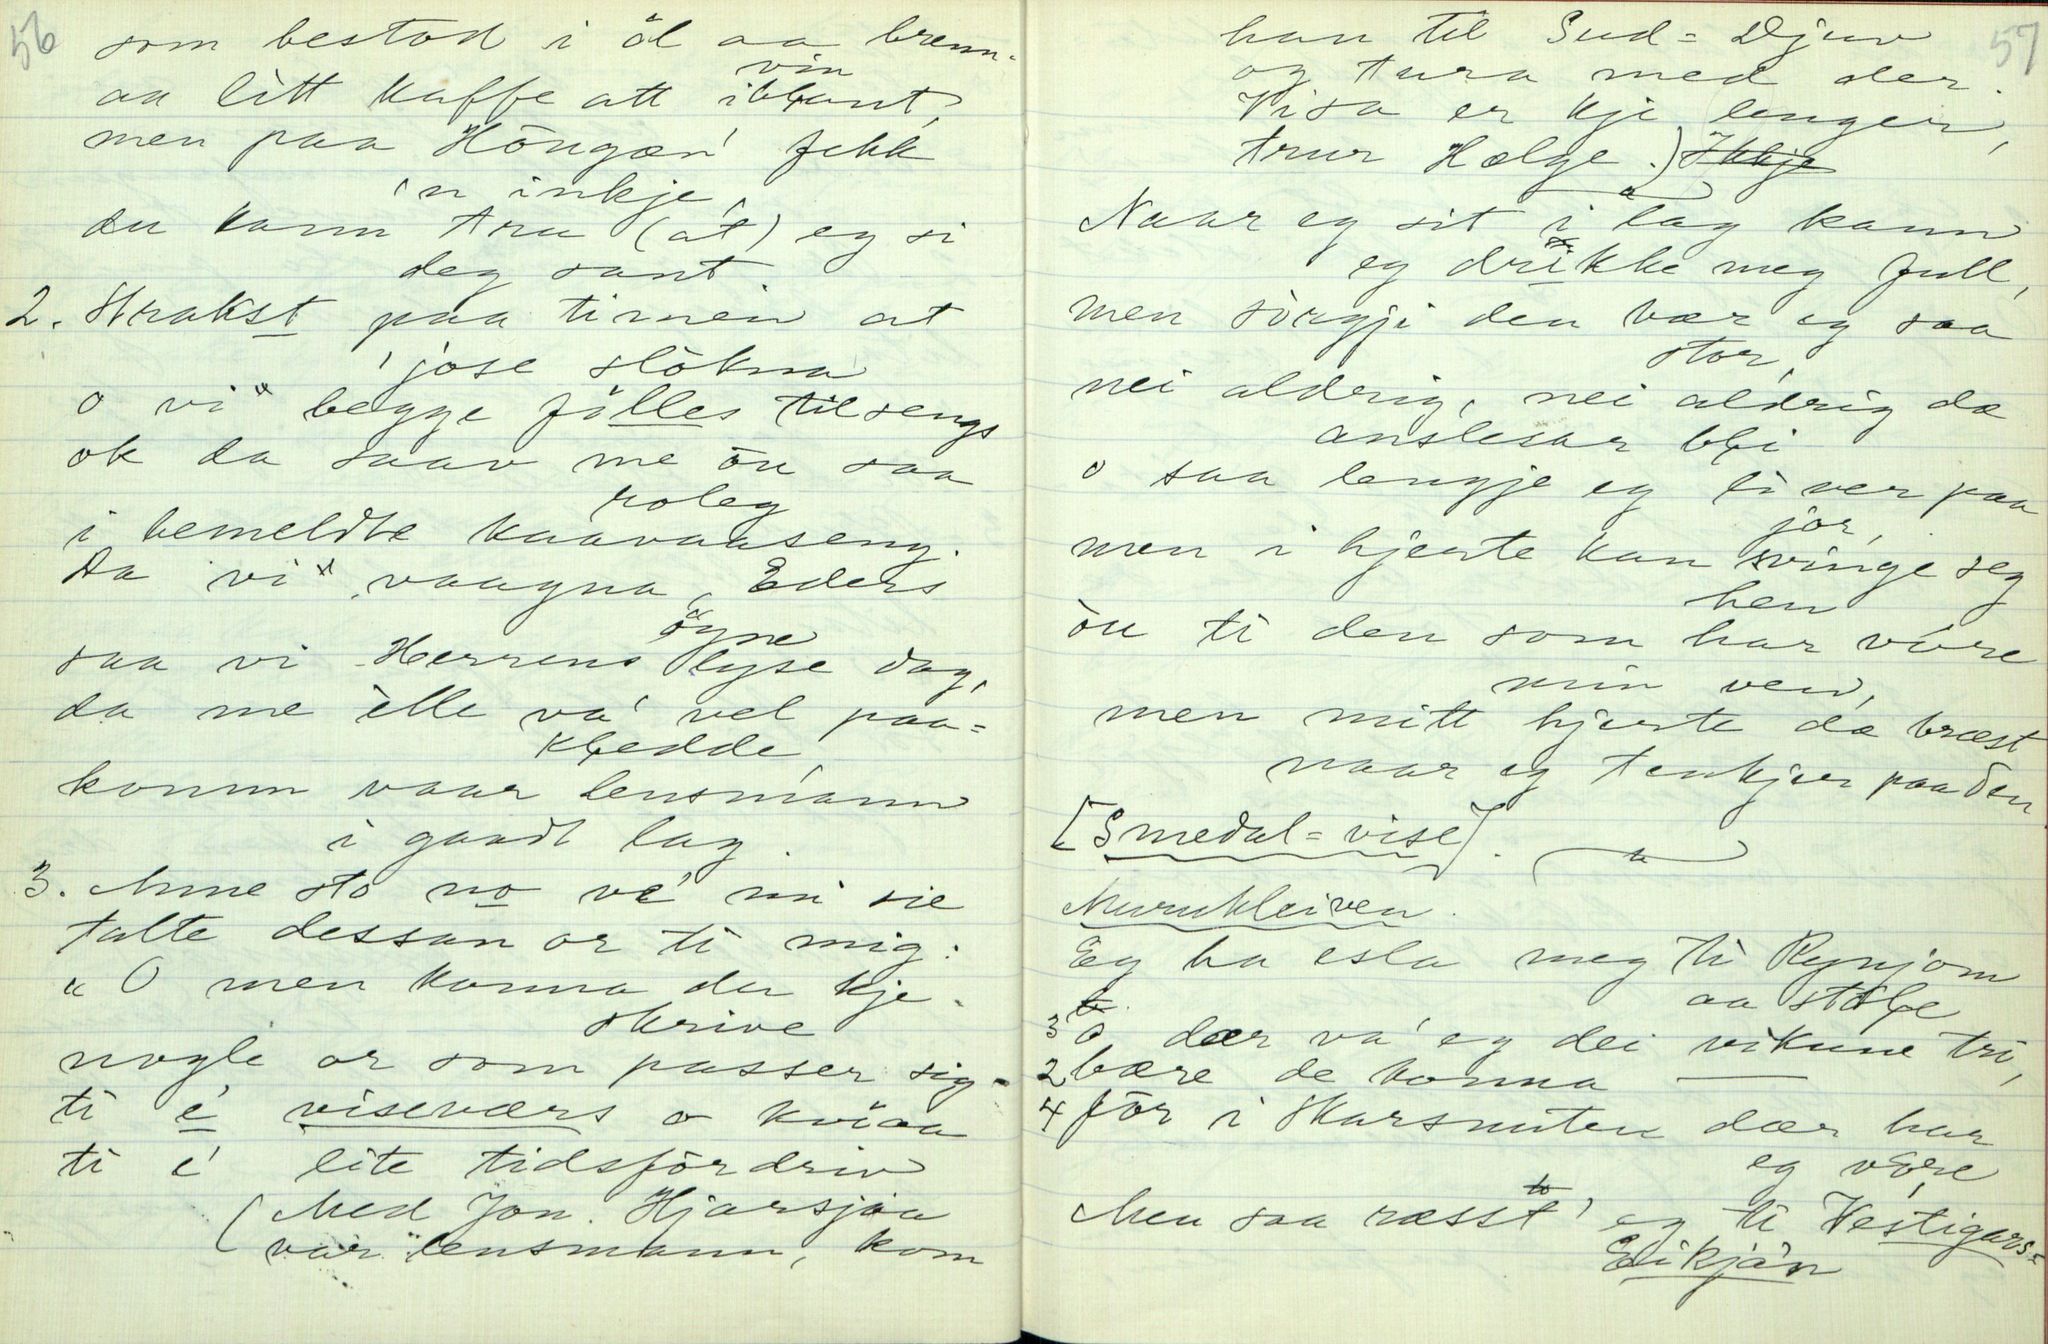 56
som bestod i öl aa brenn-
vin
aa litt kaffe att iblant,
men paa Höngæn' fekk
'n inkje,
du kann tru (at) eg si
deg sant.
2. Strakst paa timen at
'jose slökna
o vi begge fölles tilsengs
ok da saav me ou saa
roleg
i bemeldte kaavaaseng.
Da vi vaagna, Eders
öyne
saa vi Herrens lyse dag,
da me elle va' vel paa=
kledde,
komm vaar lensmann
i gaadt lag.
3. Anne sto no ve' mi sie
talte dessan or ti mig:
"O men konna du kje
skrive
nogle or som passer sig
ti é viseværs o kvöa
ti é lite tidsfördriv
(Med Jon Hjarsjöa
var lensmann, kom
57
han til Sud=Djuv
og tura med der.
Visa er kje lenger,
trur Hælge.) Ikkje
Naar eg sit i lag kann
eg drikke meg full,
men sörgji den bær eg saa
stor,
nei aldrig, nei aldrig de
anslesar bli
o saa lengje eg liver paa
jor,
men i hjerte kan svinge seg
hen
ou ti den som har vöre
min ven,
men mitt hjerte da bræst
naar eg tenkjer paa den.
[Smedal=vise].
Murukleiven.
Eg ha esla meg ti Rynjom
aa stöle
3 o dær va' eg dei vikune tri,
2 bære de konna
4 för i Skarsnuten dær har
eg vöre
Men saa ræsst' eg ti Vestigars=
Eikján